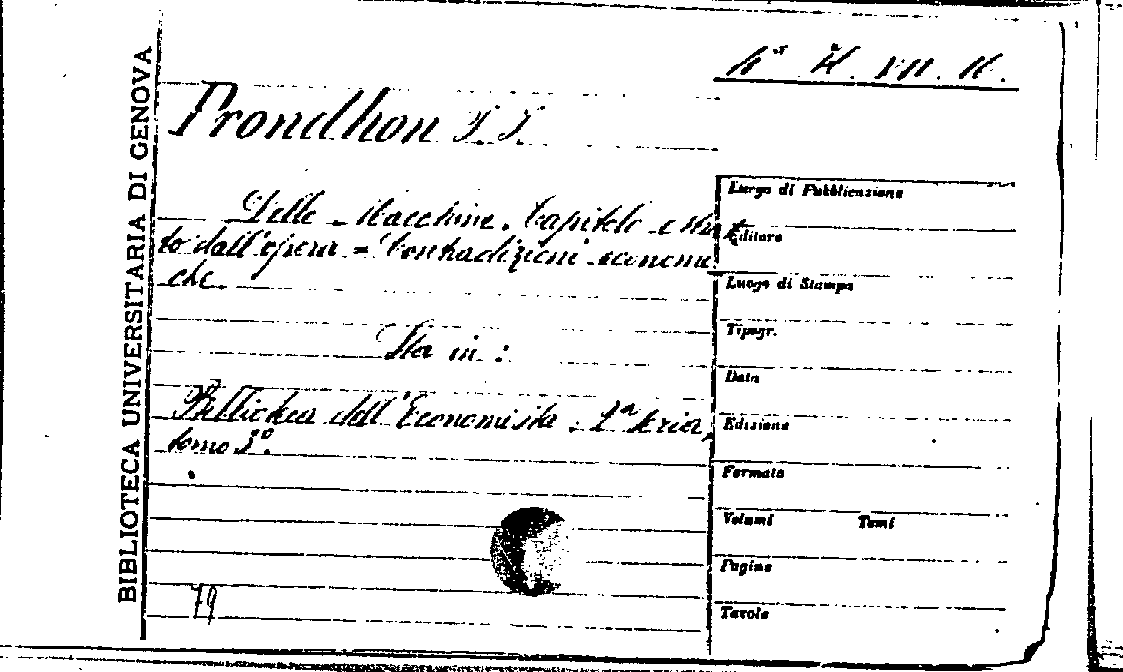 BIBLIOTECA UNIVERSITARIA DI GENOVA
Proudhon
Delle Macchine. Capitolo estrat
to dall'opera = Contradizioni economi
che.
Sta in:
Biblioteca dell'Economista. 2ª serie,
tomo
79
Luogo di Pubblicazione
Editore
Luogo di Stampa
Tipogr.
Data
Edizione
Formato
Volumi Tomi
Pagine
Tavole